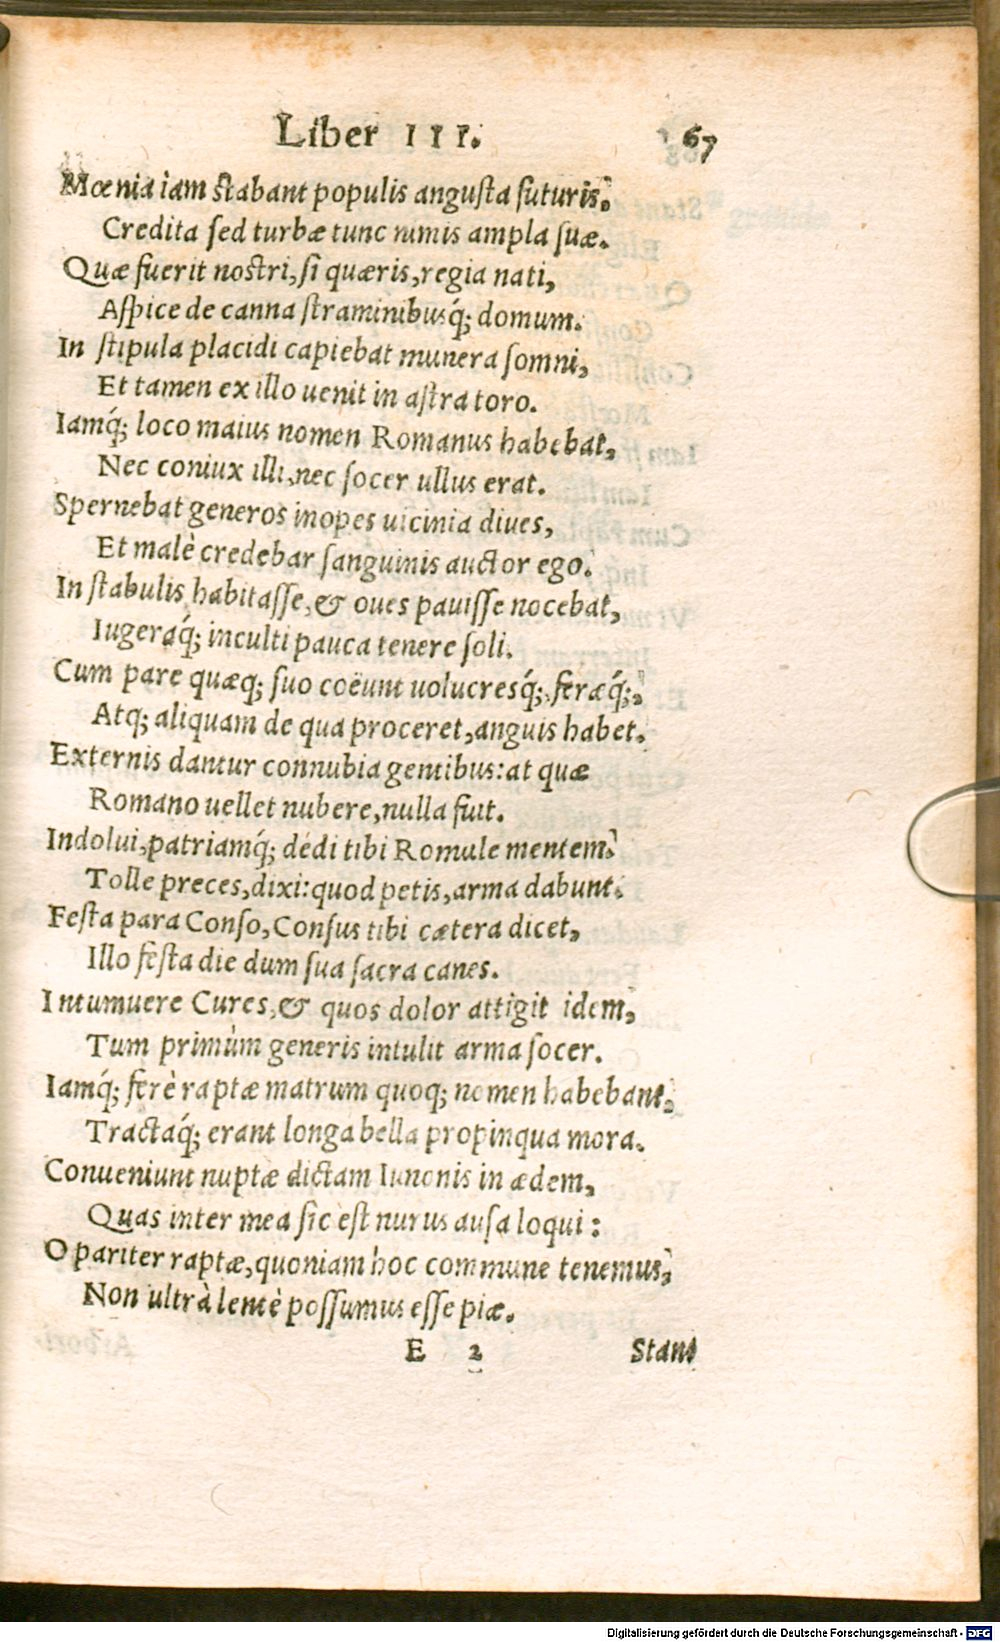 Liber III. 67
Mœnia iam stabant populis angusta futuris:
Credita sed turbæ tunc nimis ampla suæ.
Quæ fuerit nostri, si quæris, regia nati,
Aspice de canna straminibusq́; domum.
In stipula placidi capiebat munera somni,
Et tamen ex illo uenit in astra toro.
Iamq́; loco maius nomen Romanus habebat,
Nec coniux illi, nec socer ullus erat.
Spernebat generos inopes uicinia diues,
Et malè credebar sanguinis auctor ego.
In stabulis habitasse, & oues pauisse nocebat,
Iugeraq́; inculti pauca tenere soli.
Cum pare quæq; suo coëunt uolucresq́;, feræq́;,
Atq; aliquam de qua proceret, anguis habet.
Externis dantur connubia gentibus: at quæ
Romano uellet nubere, nulla fuit.
Indolui, patriamq́; dedi tibi Romule mentem:
Tolle preces, dixi: quod petis, arma dabunt.
Festa para Conso, Consus tibi cætera dicet,
Illo festa die dum sua sacra canes.
Intumuere Cures, & quos dolor attigit idem,
Tum primùm generis intulit arma socer.
Iamq́; ferè raptæ matrum quoq; nomen habebant,
Tractaq́; erant longa bella propinqua mora.
Conueniunt nuptæ dictam Iunonis in ædem,
Quas inter mea sic est nurus ausa loqui:
O pariter raptæ, quoniam hoc commune tenemus,
Non ultrà lentè possumus esse piæ.
E 2 Stant
Digitalisierung gefördert durch die Deutsche Forschungsgemeinschaft - DFG